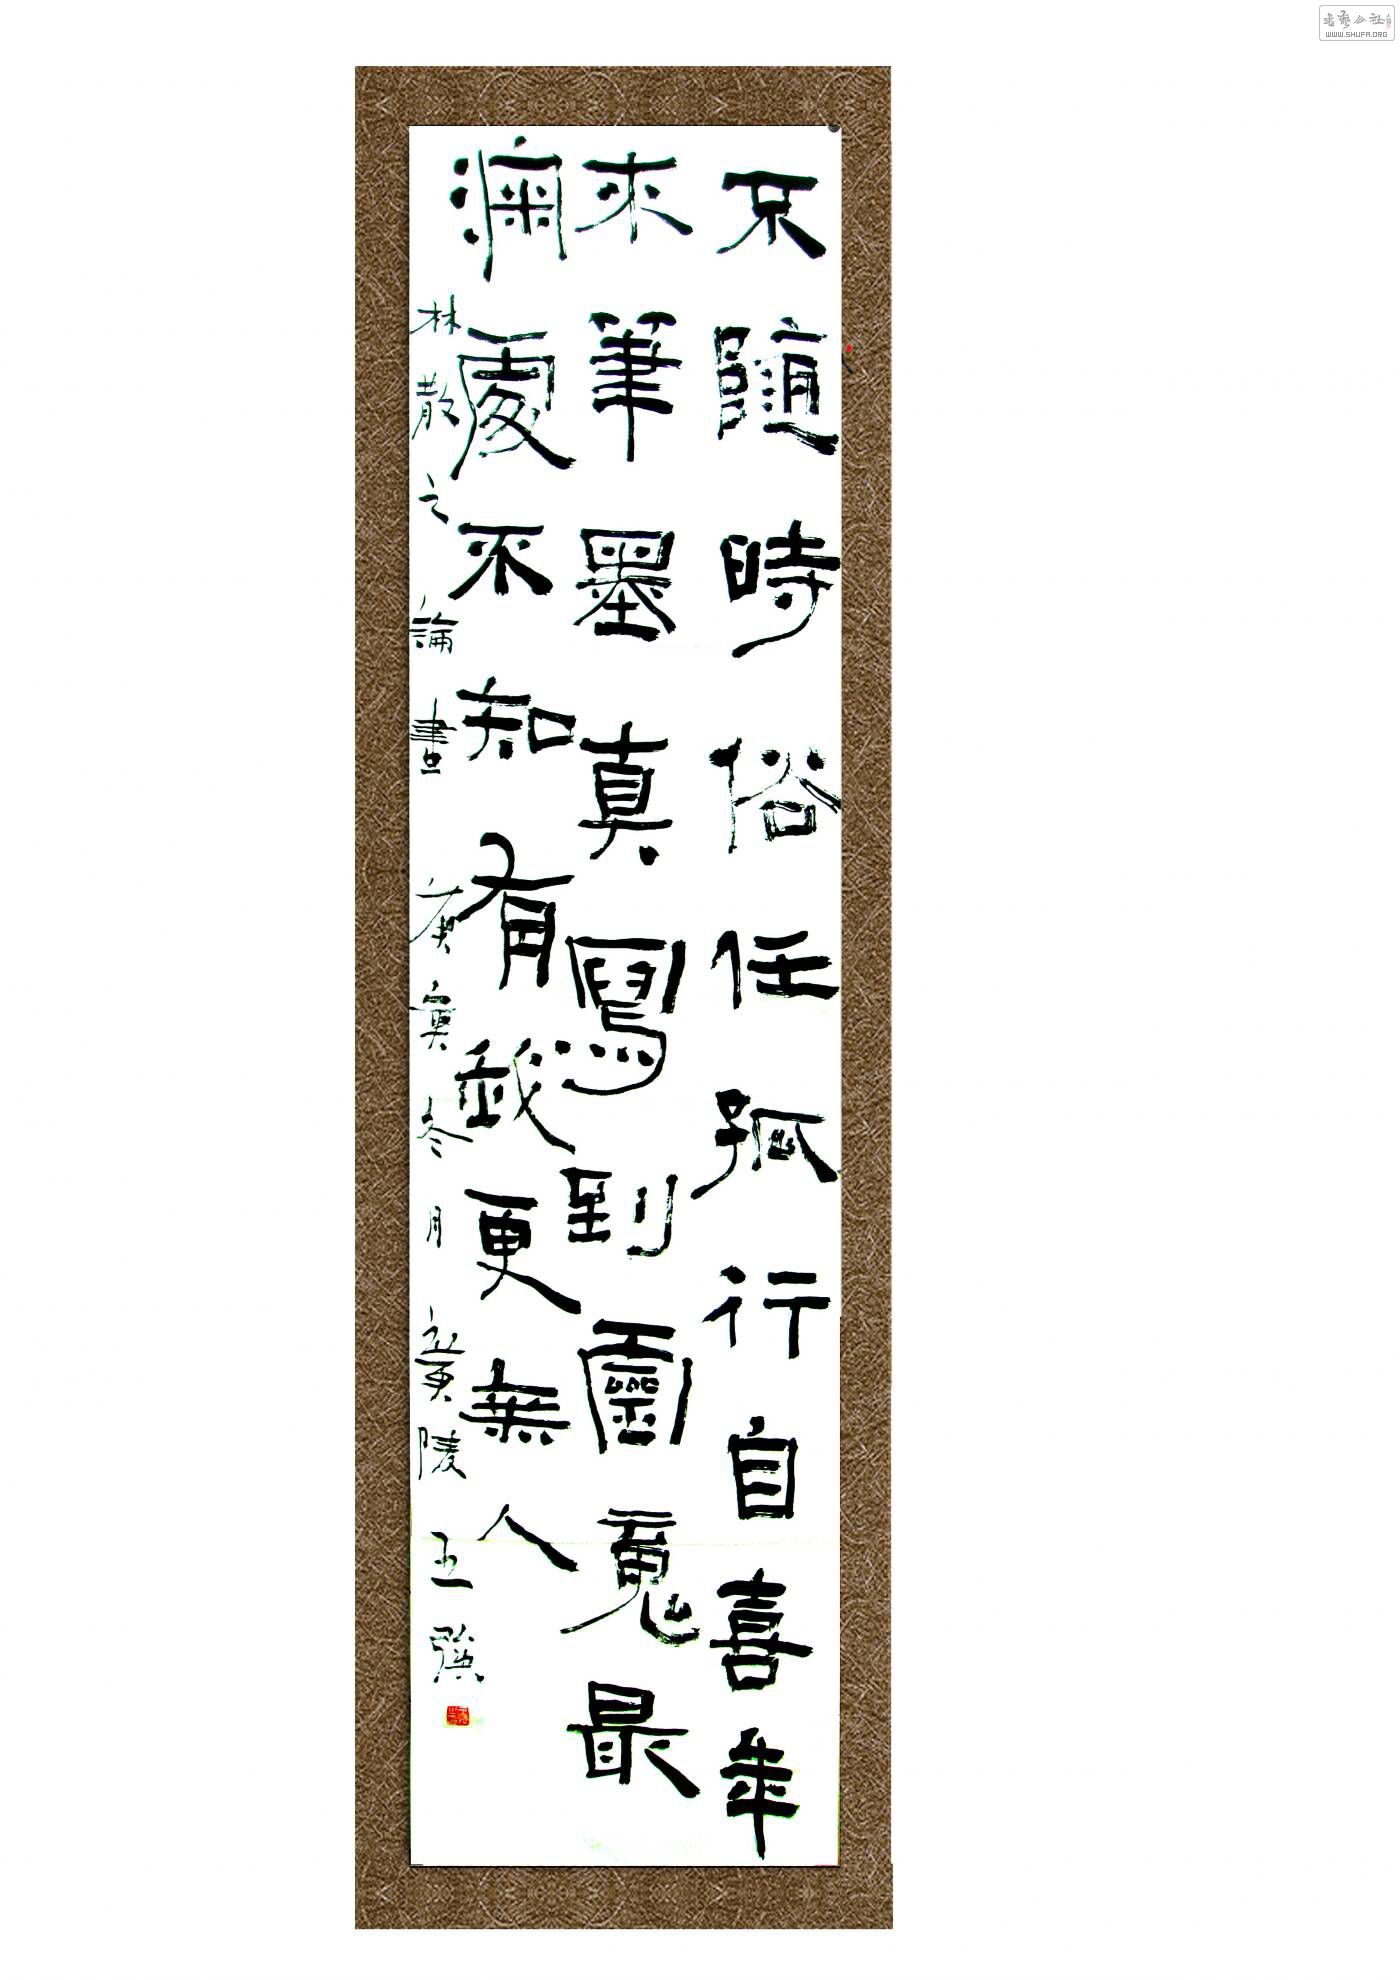 不隨時俗任孤行自喜年
來筆墨真寫到靈魂最
深處不知有我更無人
林散之論書 庚寅冬月 黃陵王強
書藝公社
WWW.SHUFA.ORG